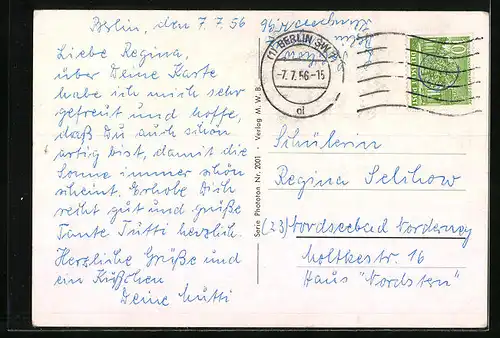 Berlin, den 7.7.56
Liebe Regina,
über Deine Karte
habe ich mich sehr
gefreut und hoffe,
daß Du auch schön
artig bist, damit die
Sonne immer schön
scheint. Erhole Dich
recht gut und grüße
Tante Tutti herzlich.
Herzliche Grüße und
ein Küßchen
Deine Mutti
Serie Phototon Nr. 2001 · Verlag M. W. B.
(1) BERLIN SW
-7.7.56-15
Schülerin
Regina Selchow
(23) Nordseebad Norderney
Moltkestr. 16
Haus "Nordstern"
10